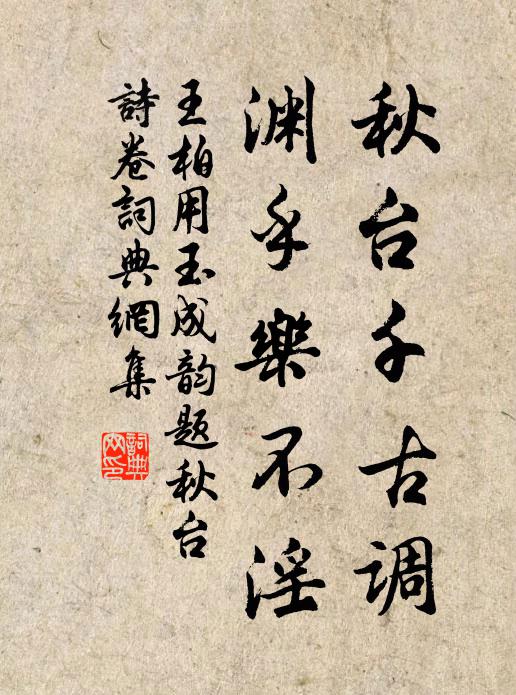 秋台千古调
渊乎樂不淫
王柏用玉成韵题秋台
詩卷詞典網集
詞典网印